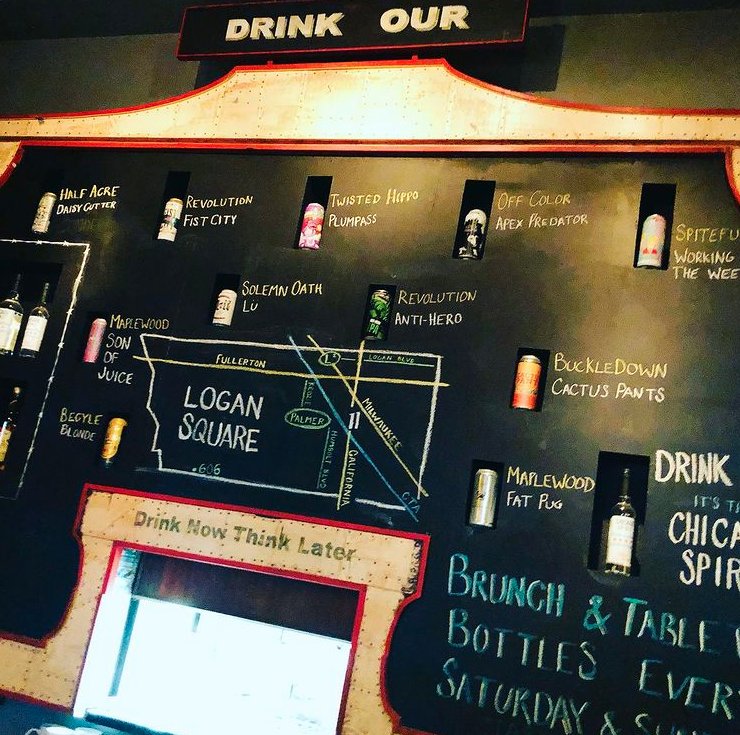 DRINK OUR
HALF ACRE
DAISY CUTTER
REVOLUTION
FIST CITY
TWISTED HIPPO
PLUMPASS
OFF COLOR
APEX PREDATOR
SPITEFU
WORKING
THE WEE
SOLEMN OATH
LÜ
REVOLUTION
ANTI-HERO
MAPLEWOOD
SON
OF
JUICE
BEGYLE
BLONDE
FULLERTON
LOGAN BLVD
LOGAN
SQUARE
PALMER
HUMBOLT BLVD
MILWAUKEE
CALIFORNIA
CTA
.606
BUCKLEDOWN
CACTUS PANTS
MAPLEWOOD
FAT PUG
DRINK
IT'S T
CHICA
SPIR
Drink Now Think Later
BRUNCH & TABLE
BOTTLES EVER
SATURDAY & SUN